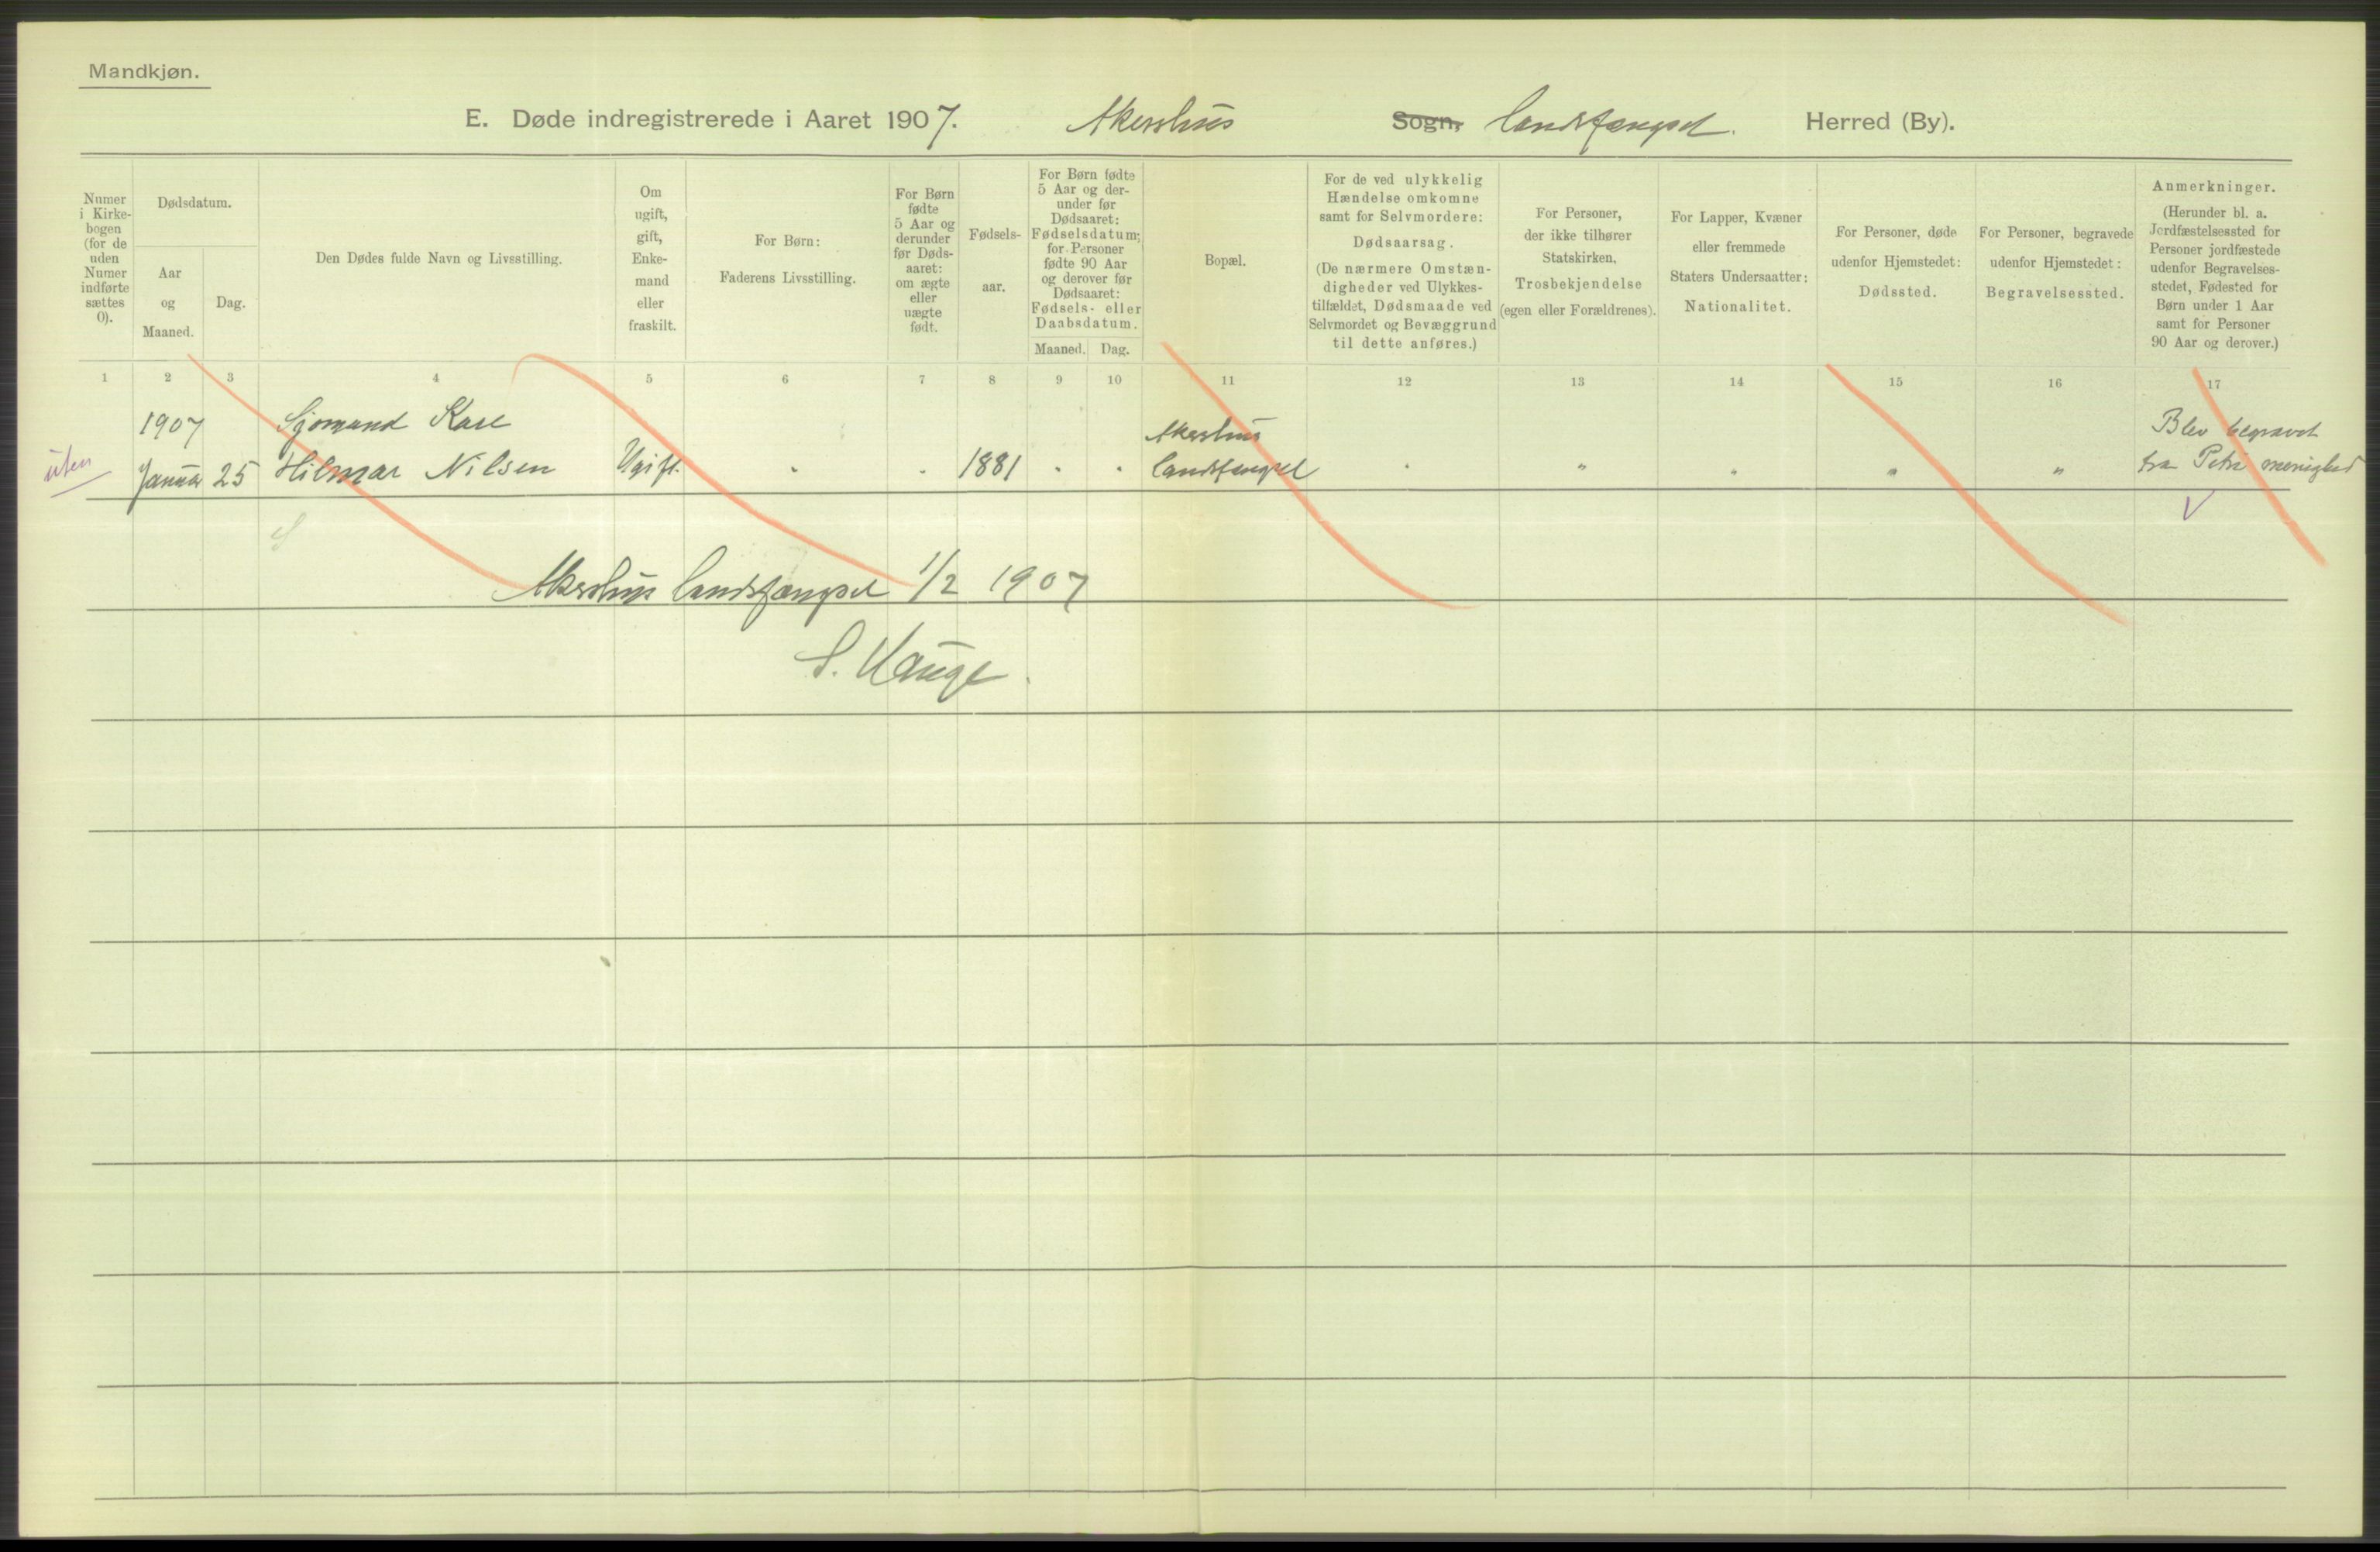 Mandkjøn.
E. Døde indregistrerede i Aaret 1907. Akershus Sogn, landsfængsel. Herred (By).
Numer i Kirke-bogen (for de uden Numer indførte sættes 0).
Dødsdatum.
Aar og Maaned.
Dag.
Den Dødes fulde Navn og Livsstilling.
Om ugift, gift, Enke-mand eller fraskilt.
For Børn: Faderens Livsstilling.
For Børn fødte 5 Aar og derunder før Døds-aaret: om ægte eller uægte født.
Fødsels-aar.
For Børn fødte 5 Aar og der-under før Dødsaaret: Fødselsdatum; for Personer fødte 90 Aar og derover før Dødsaaret: Fødsels- eller Daabsdatum.
Maaned. Dag.
Bopæl.
For de ved ulykkelig Hændelse omkomne samt for Selvmordere: Dødsaarsag. (De nærmere Omstæn-digheder ved Ulykkes-tilfældet, Dødsmaade ved Selvmordet og Bevæggrund til dette anføres.)
For Personer, der ikke tilhører Statskirken, Trosbekjendelse (egen eller Forældrenes).
For Lapper, Kvæner eller fremmede Staters Undersaatter: Nationalitet.
For Personer, døde udenfor Hjemstedet: Dødssted.
For Personer, begravede udenfor Hjemstedet: Begravelsessted.
Anmerkninger. (Herunder bl. a. Jordfæstelsessted for Personer jordfæstede udenfor Begravelses-stedet, Fødested for Børn under 1 Aar samt for Personer 90 Aar og derover.)
1 2 3 4 5 6 7 8 9 10 11 12 13 14 15 16 17
1907 Sjømand Karl Akershus Blev begravet
uten Januar 25 Hilmar Nilsen Ugift. " " 1881 " " landsfængsel " " " " " fra Petri menighed
Akershus landsfængsel 1/2 1907
S. Hauge.